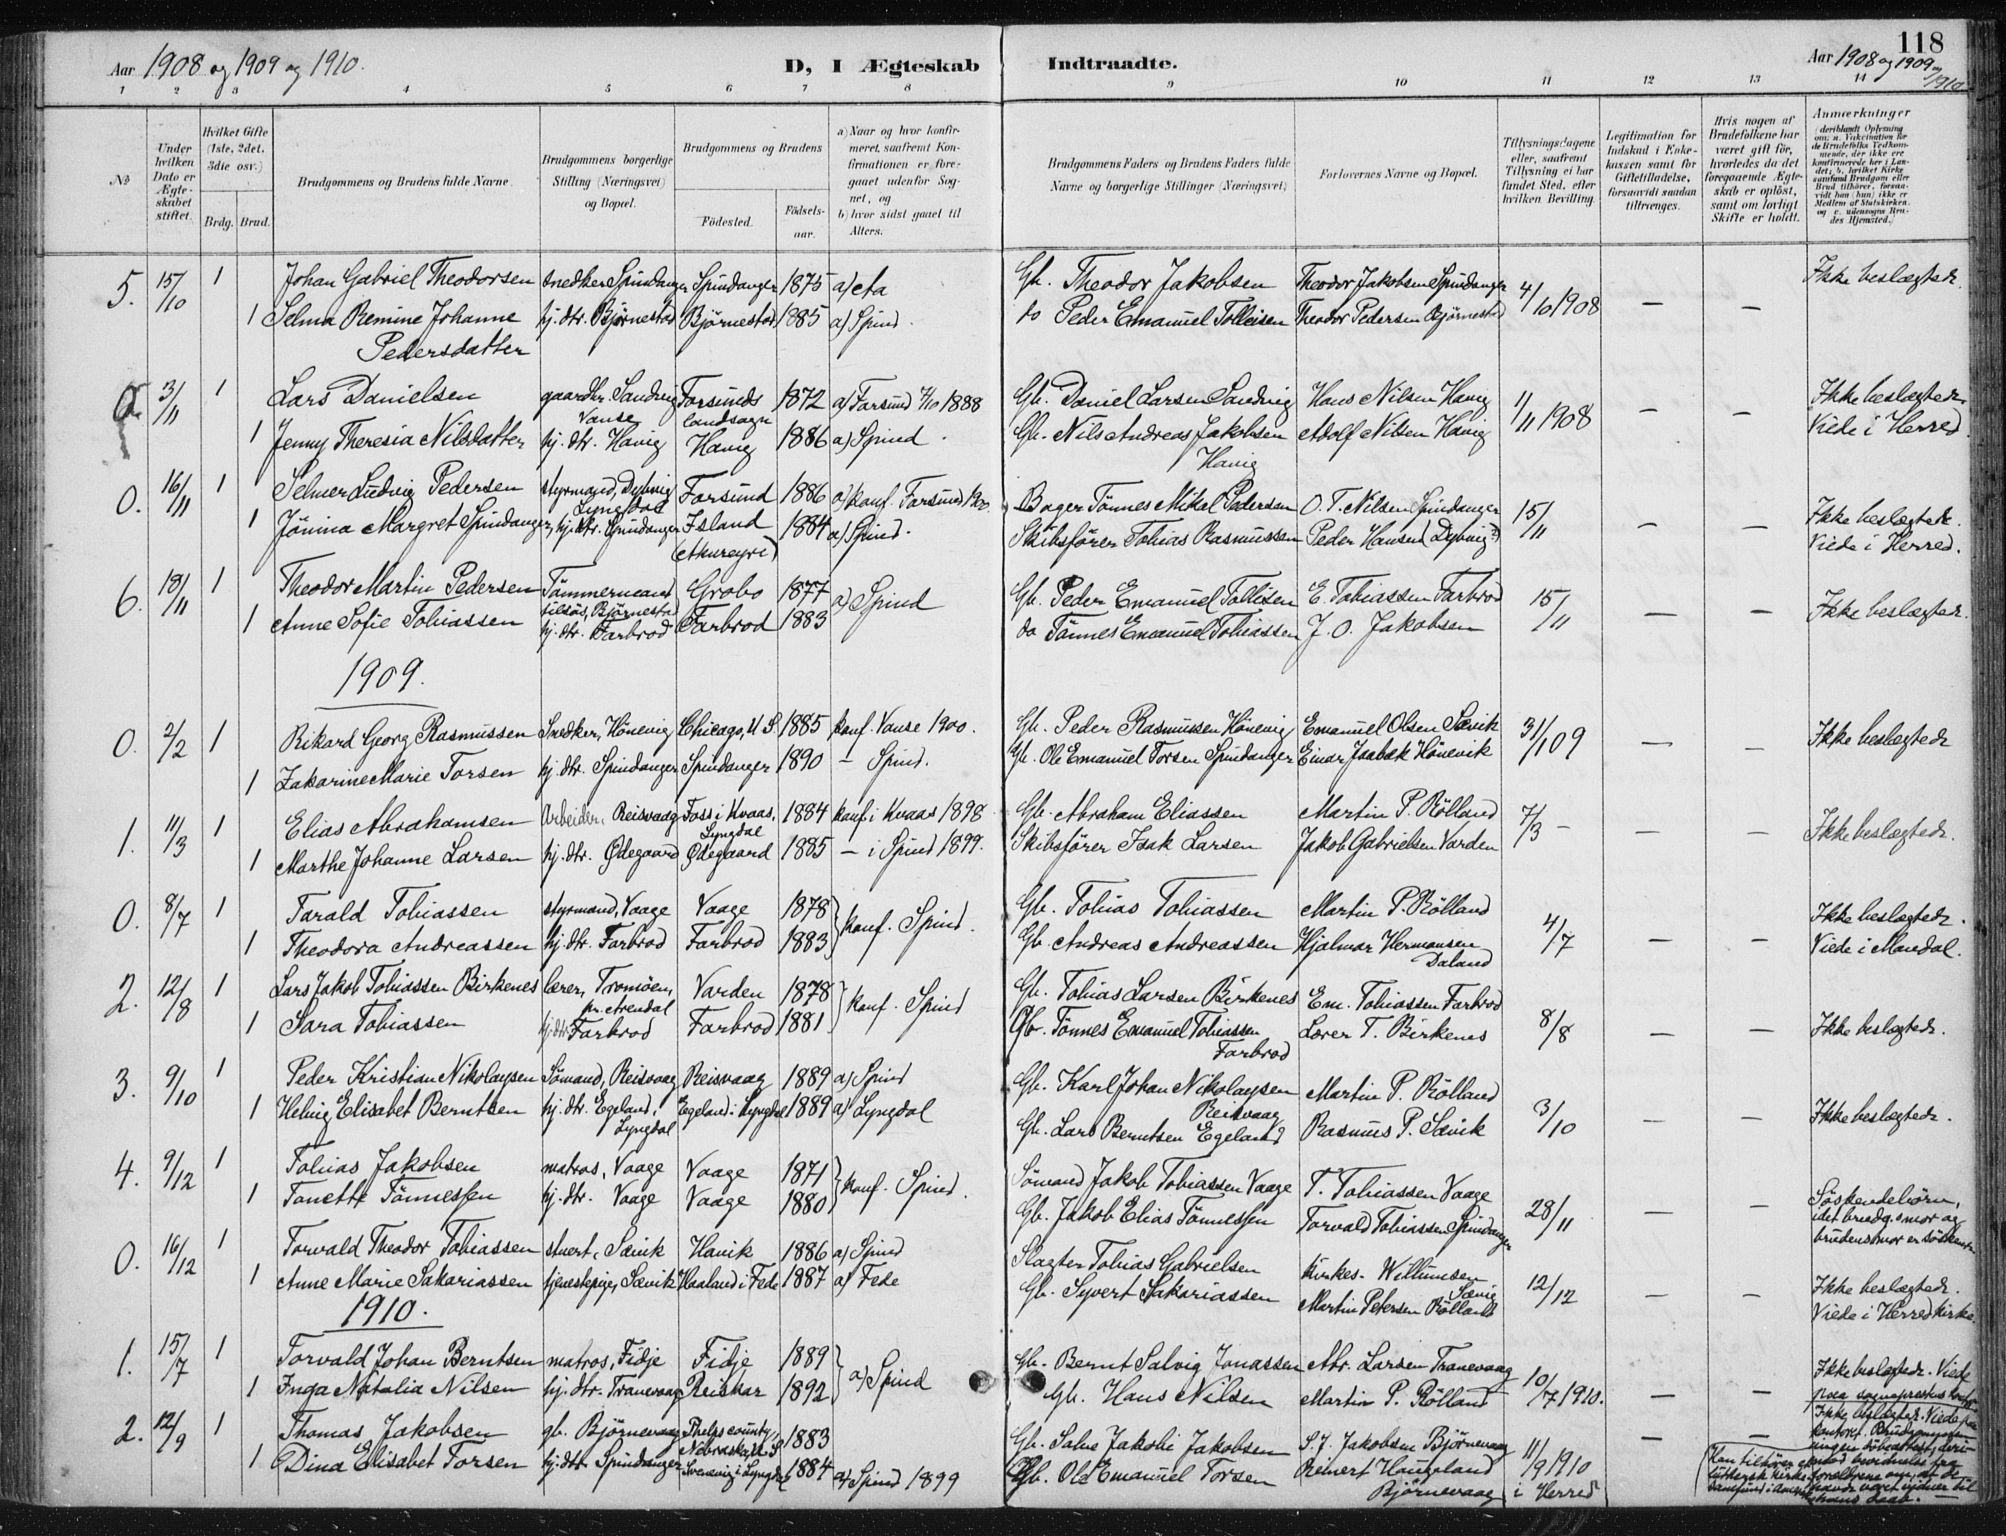 118
Aar 1908 og 1909 og 1910. D, I Ægteskab Indtraadte. Aar 1908 og 1909 og 1910
1 2 3 4 5 6 7 8 9 10 11 12 13 14
No
Under hvilken Dato er Ægteskabet stiftet.
Hvilket Gifte (1ste, 2det, 3die osv.)
Brdg. Brud.
Brudgommens og Brudens fulde Navne.
Brudgommens borgerlige Stilling (Næringsvei) og Bopæl.
Brudgommens og Brudens
Födested. Födselsaar.
a) Naar og hvor konfirmeret, saafremt Konfirmationen er foregaaet udenfor Sognet, og
b) hvor sidst gaaet til Alters.
Brudgommens Faders og Brudens Faders fulde Navne og borgerlige Stillinger (Næringsvei)
Forlovernes Navne og Bopæl.
Tillysningsdagene eller, saafremt Tillysning ei har fundet Sted, efter hvilken Bevilling.
Legitimation for Indskud i Enkekassen samt for Giftetilladelse, forsaavidt saadan tiltrænges.
Hvis nogen af Brudefolkene har været gift för, hvorledes da det foregaaende Ægteskab er oplöst, samt om lovligt Skifte er holdt.
Anmærkninger
5. 15/10 1 Johan Gabriel Theodorsen snedker Spindanger Spindanger 1875 a) cta Gb. Theodor Jakobsen Theodor Jakobsen Spindanger 4/10 1908 — — Ikke beslægtede
1 Selma Remine Johanne hj. dtr. Björnestad Björnestad 1885 a) Spind. do Peder Emanuel Tollisen Theodor Pedersen Björnestad
Pedersdatter
0. 3/11 1 Lars Danielsen gaardbr. Sandvig Farsunds 1872 a) Farsund 7/10 1888 Gb. Daniel Larsen Sandvig Hans Nilsen Havig 1/11 1908 — — Ikke beslægtede.
Vanse landsogn
1 Jenny Theresia Nilsdatter hj. dtr. Havig Havig 1886 a) Spind. Gb. Nils Andreas Jakobsen Adolf Nilsen Havig Viede i Herred.
Havig
0. 16/11 1 Selmer Ludvig Pedersen styrmand, Dybvig Farsund 1886 a) konf. Farsund 1900. Bager Tönnes Mikal Pedersen O. T. Nilsen Spindanger 15/11 — — Ikke beslægtede.
Lyngdal
1 Jönina Margret Spindanger, hj. dtr. Spindanger Island 1884 a) Spind. Skibsförer Tobias Rasmussen Peder Hansen (Dybvig?) Viede i Herred.
(Akureyri)
6. 18/11 1 Theodor Martin Pedersen Tömmermand Grobo 1877 a) Spind Gb. Peder Emanuel Tollisen E. Tobiassen Farbrod 15/11 — — Ikke beslægtede.
tilsös, Björnestad
1 Anne Sofie Tobiassen hj. dtr. Farbrod Farbrod 1883 do Tönnes Emanuel Tobiassen J. O. Jakobsen
1909.
0. 2/2 1 Rikard Georg Rasmussen Snedker, Hönevig Chicago, U S. 1885 konf. Vanse 1900. Gb. Peder Rasmussen Hönevig Emanuel Olsen Sævik 31/1 09 — — Ikke beslægtede
1 Zakarine Marie Torsen hj. dtr. Spindanger Spindanger 1890 — Spind. Gb. Ole Emanuel Torsen Spindanger Einar Isabak Hönevik
1. 11/3 1 Elias Abrahamsen Arbeider, Reisvaag Foss i Kvaas, 1884 konf. i Kvaas 1898 Gb. Abraham Eliassen Martin P. Rölland 7/3 — — — Ikke beslægtede.
Lyngdal
1 Marthe Johanne Larsen hj. dtr. Ødegaard Ødegaard 1885 — i Spind 1899. Skibsförer Isak Larsen Jakob Gabrielsen Varden
0. 8/7 1 Tarald Tobiassen styrmand, Vaage Vaage 1878 konf. Spind. Gb. Tobias Tobiassen Martin P. Rölland 4/7 — — Ikke beslægtede.
1 Theodora Andreassen hj. dtr. Farbrod Farbrod 1883 Gb. Andreas Andreassen Hjalmar Hermansen Viede i Mandal.
Daland
2. 12/8 1 Lars Jakob Tobiassen Birkenes lærer, Tromöen, Varden 1878 konf. Spind Gb. Tobias Larsen Birkenes Em. Tobiassen Farbrod 8/8 — — Ikke beslægtede.
pr. Arendal
1 Sara Tobiassen hj. dtr. Farbrod Farbrod 1881 Gb. Tönnes Emanuel Tobiassen Lærer T. Birkenes
Farbrod
3. 9/10 1 Peder Kristian Nikolaysen Sömand, Reisvaag Reisvaag 1889 a) Spind Gb. Karl Johan Nikolaysen Martin P. Rölland 3/10 — — Ikke beslægtede.
Reisvaag
1 Helvig Elisabet Berntsen hj. dtr. Egeland, Egeland i Lyngdal 1889 a) Lyngdal Gb. Lars Berntsen Egeland Rasmus P. Sævik
Lyngdal
4. 9/12 1 Tobias Jakobsen matros, Vaage Vaage 1871 konf. Spind. Sömand Jakob Tobiassen Vaage T. Tobiassen Vaage 28/11 — — Söskendebörn,
1 Tonette Tönnessen hj. dtr. Vaage Vaage 1880 Gb. Jakob Elias Tönnessen Torvald Tobiassen Spindanger idet brudg.s mor og
brudens mor er söskende
0. 16/12 1 Torvald Theodor Tobiassen stuert, Sævik Havik 1886 a) Spind Slagter Tobias Gabrielsen Kirkes. Willumsen 12/12 — — Ikke beslægtede.
Sævig
1 Anne Marie Sakariassen tjenestepige, Sævik Haaland i Fede 1887 a) Fede Gb. Syvert Sakariassen Martin Petersen Rölland Viede i Herred kirke.
1910.
1. 15/7 1 Torvald Johan Berntsen matros, Fidje Fidje 1889 a) Spind Gb. Bernt Salvig Jonassen Abr. Larsen Tranevaag 10/7 1910. — — Ikke beslægtede. Viede
1 Inga Natalia Nilsen hj. dtr. Tranevaag Reiskar 1892 Gb. Hans Nilsen Martin P. Rölland paa sognepræstens kontor.
2. 12/9 1 Thomas Jakobsen gb. Björnevaag Phelps county, 1883 Gb. Salve Jakobi Jakobsen S. J. Jakobsen Björnevaag 11/9 1910 — — Ikke beslægtede. Viede paa
Nebraska U. S. kontoret.
1 Dina Elisabet Torsen hj. dtr. Spindanger Svenevig i Lyngdal 1884 a) Spind 1899 Gb. Ole Emanuel Torsen Reinert Haugeland i Herred
Björnevaag